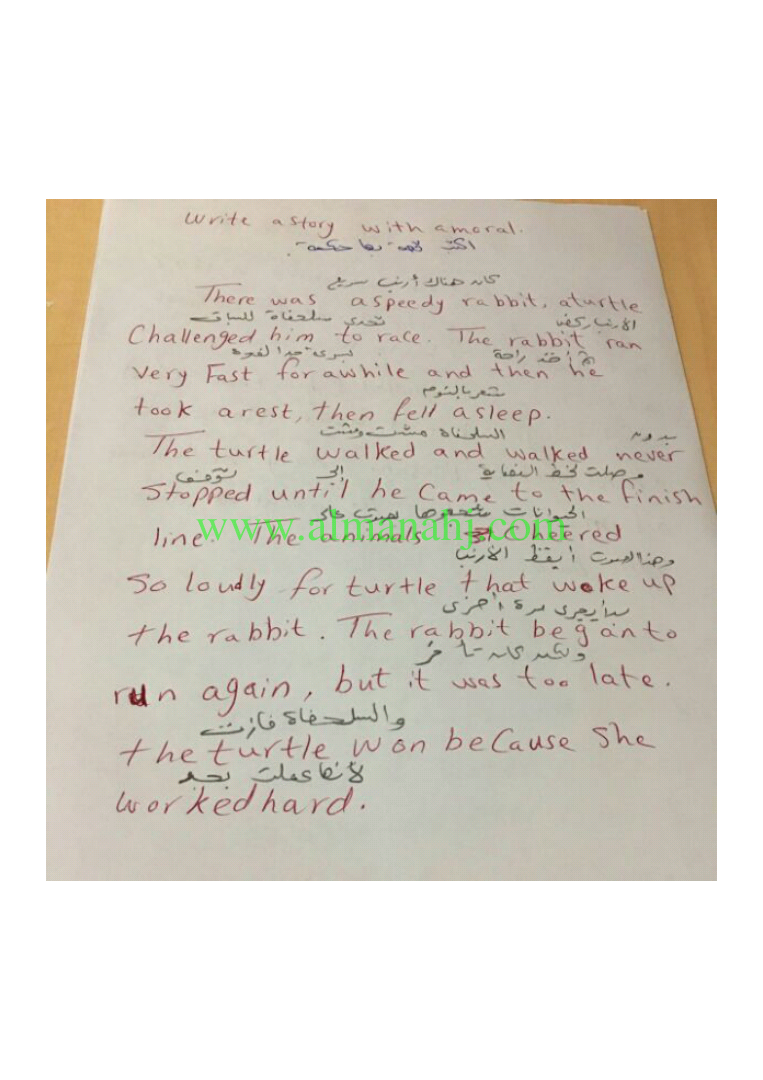 Write a story with a moral.
اكتب قصة بها حكمة.
كان هناك أرنب سريع
There was a speedy rabbit, a turtle
تحدى سلحفاة للسباق الأرنب ركض
Challenged him to race. The rabbit ran
بسرعة جدا لفترة ثم أخذ راحة
very Fast for awhile and then he
شعر بالنوم
took a rest, then fell asleep.
السلحفاة مشت ومشت بدون
The turtle walked and walked never
توقف إلى وصلت لخط النهاية
Stopped until he Came to the finish
الحيوانات بصوت عالي
line The animals Cheered
www.almanahj.com
وهذا الصوت أيقظ الأرنب
So loudly for turtle that woke up
بدأ يجري مرة أخرى
the rabbit. The rabbit began to
ولكنه كان تأخر
run again, but it was too late.
والسلحفاة فازت
the turtle won beCause She
لأنها عملت بجد
worked hard.